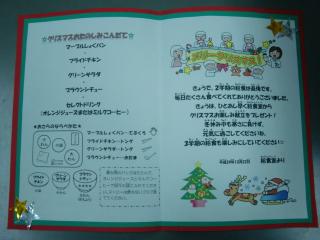 ☆クリスマスおたのしみこんだて☆
マーブルしょくパン
フライドチキン
グリーンサラダ
ブラウンシチュー
セレクトドリンク
(オレンジジュースまたはミルクコーヒー)
☆おさらのならべかた☆
マーブルしょくパン・てぶくろ
フライドチキン・トング
グリーンサラダ・トング
ブラウンシチュー・おたま
メリークリスマス!
きょうで、2学期の給食が最後です。
毎日たくさん食べてくれてありがとうございました。
きょうは、ひとあし早く給食室から
クリスマスお楽しみ献立をプレゼント!
冬休み中も寒さに負けず、
元気に過ごしてくださいね。
3学期の給食も楽しみにしていてください!
給食室より